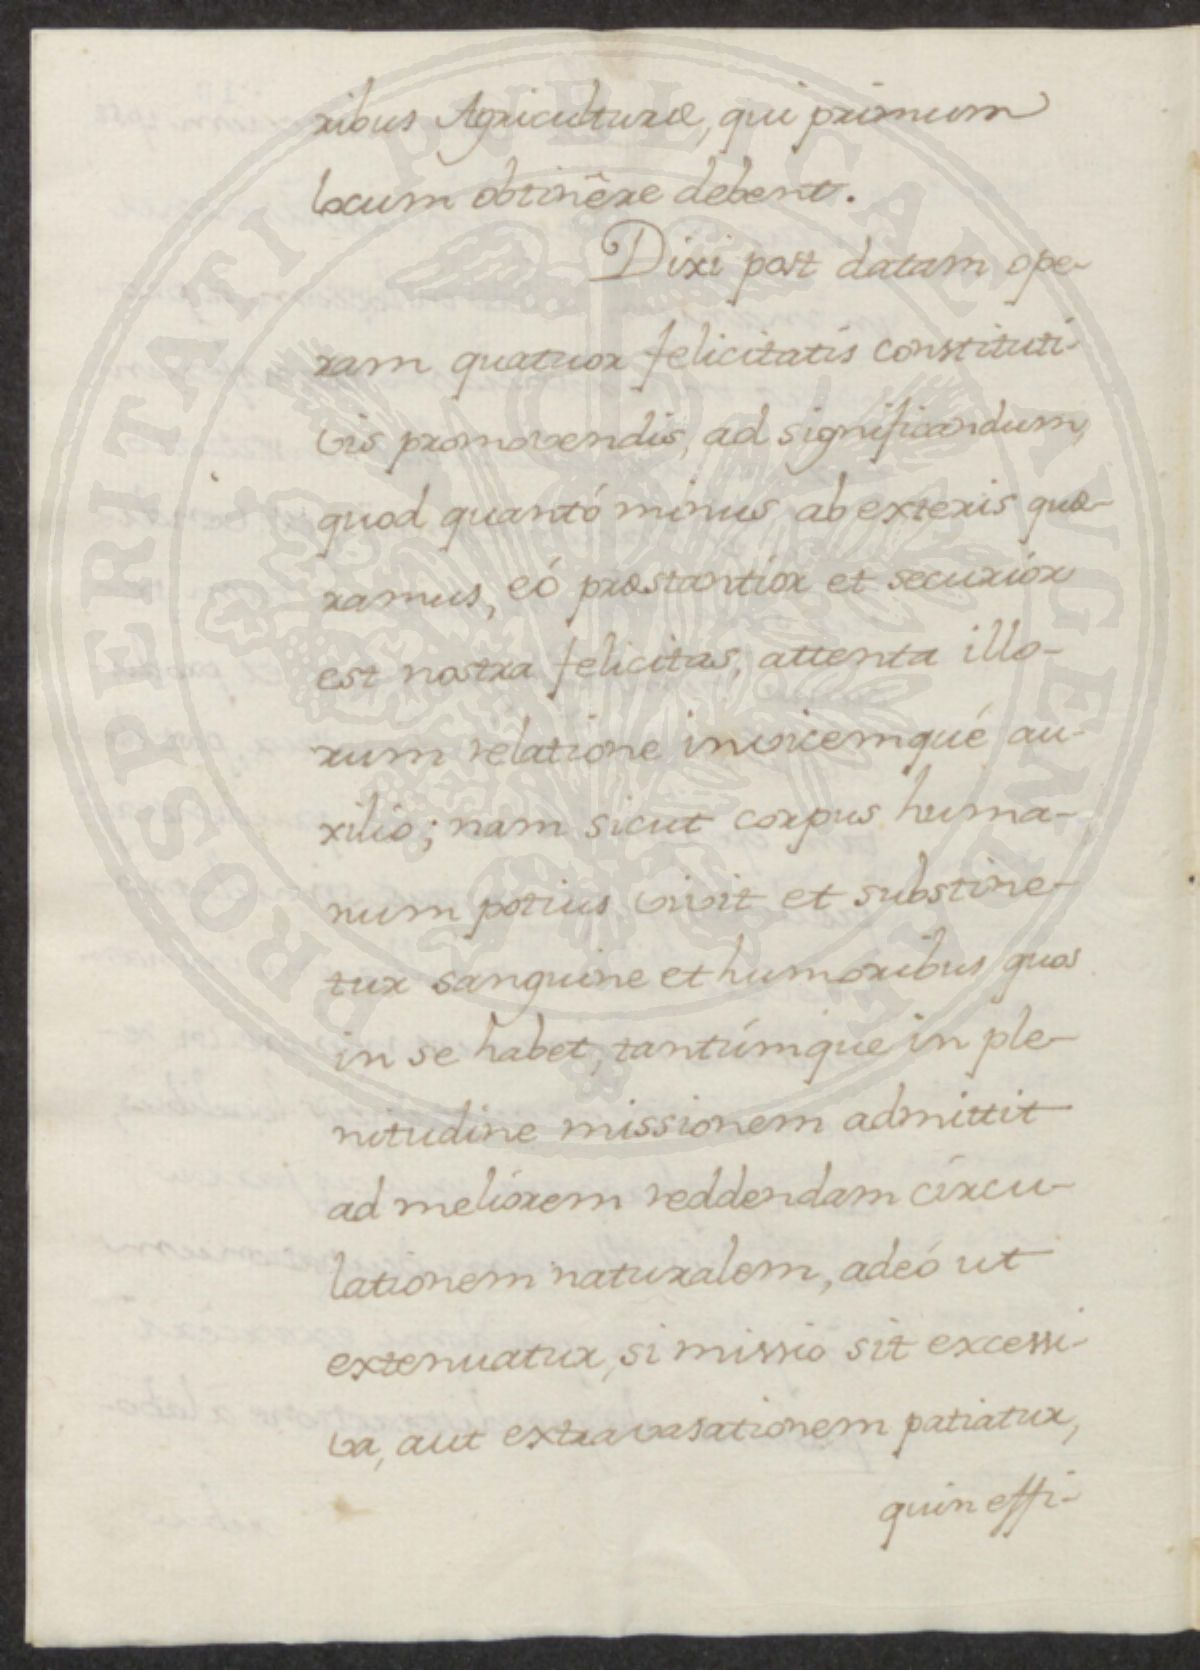 ribus Agriculturæ, qui primum
locum obtinêre debent.
Dixi post datam ope-
ram quatuor felicitatis constituti-
vis promovendis, ad significandum,
quod quantó minus ab exteris quæ-
ramus, eó præstantior et securiór
est nostra felicitas, attenta illo-
rum relatione invicemqué au-
xilio; nam sicut corpus huma-
num potius vivit et substine-
tur sanguine et humoribus quos
in se habet, tantúmque in ple-
nitudine missionem admittit
ad meliórem reddendam circu-
lationem naturalem, adeó ut
extenuatur, si missio sit excessi-
va, aut extravasationem patiatur,
quin effi-
PROSPERITATI PUBLICAE AUGENDAE